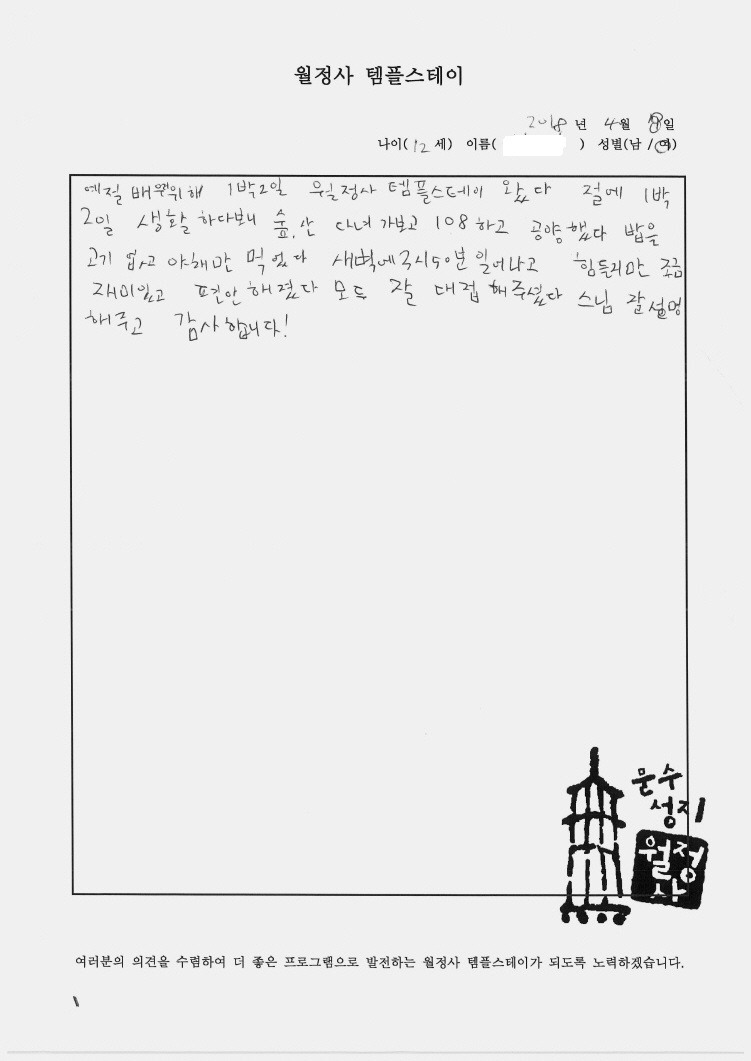 월정사 템플스테이
2018 년 4월 8일
나이( 12 세) 이름( ) 성별(남 / 여)
예절 배워위해 1박2일 월정사 템플스테이 왔다 절에 1박
2일 생활 하다보니 숲, 산 다녀 가보고 108 하고 공양했다 밥을
고기 없고 야채만 먹었다 새벽에 3시50분 일어나고 힘들지만 조금
재미있고 편안해졌다 모두 잘 대접 해주셨다 스님 잘 설명
해주고 감사합니다!
문수
성지
월정
사
여러분의 의견을 수렴하여 더 좋은 프로그램으로 발전하는 월정사 템플스테이가 되도록 노력하겠습니다.